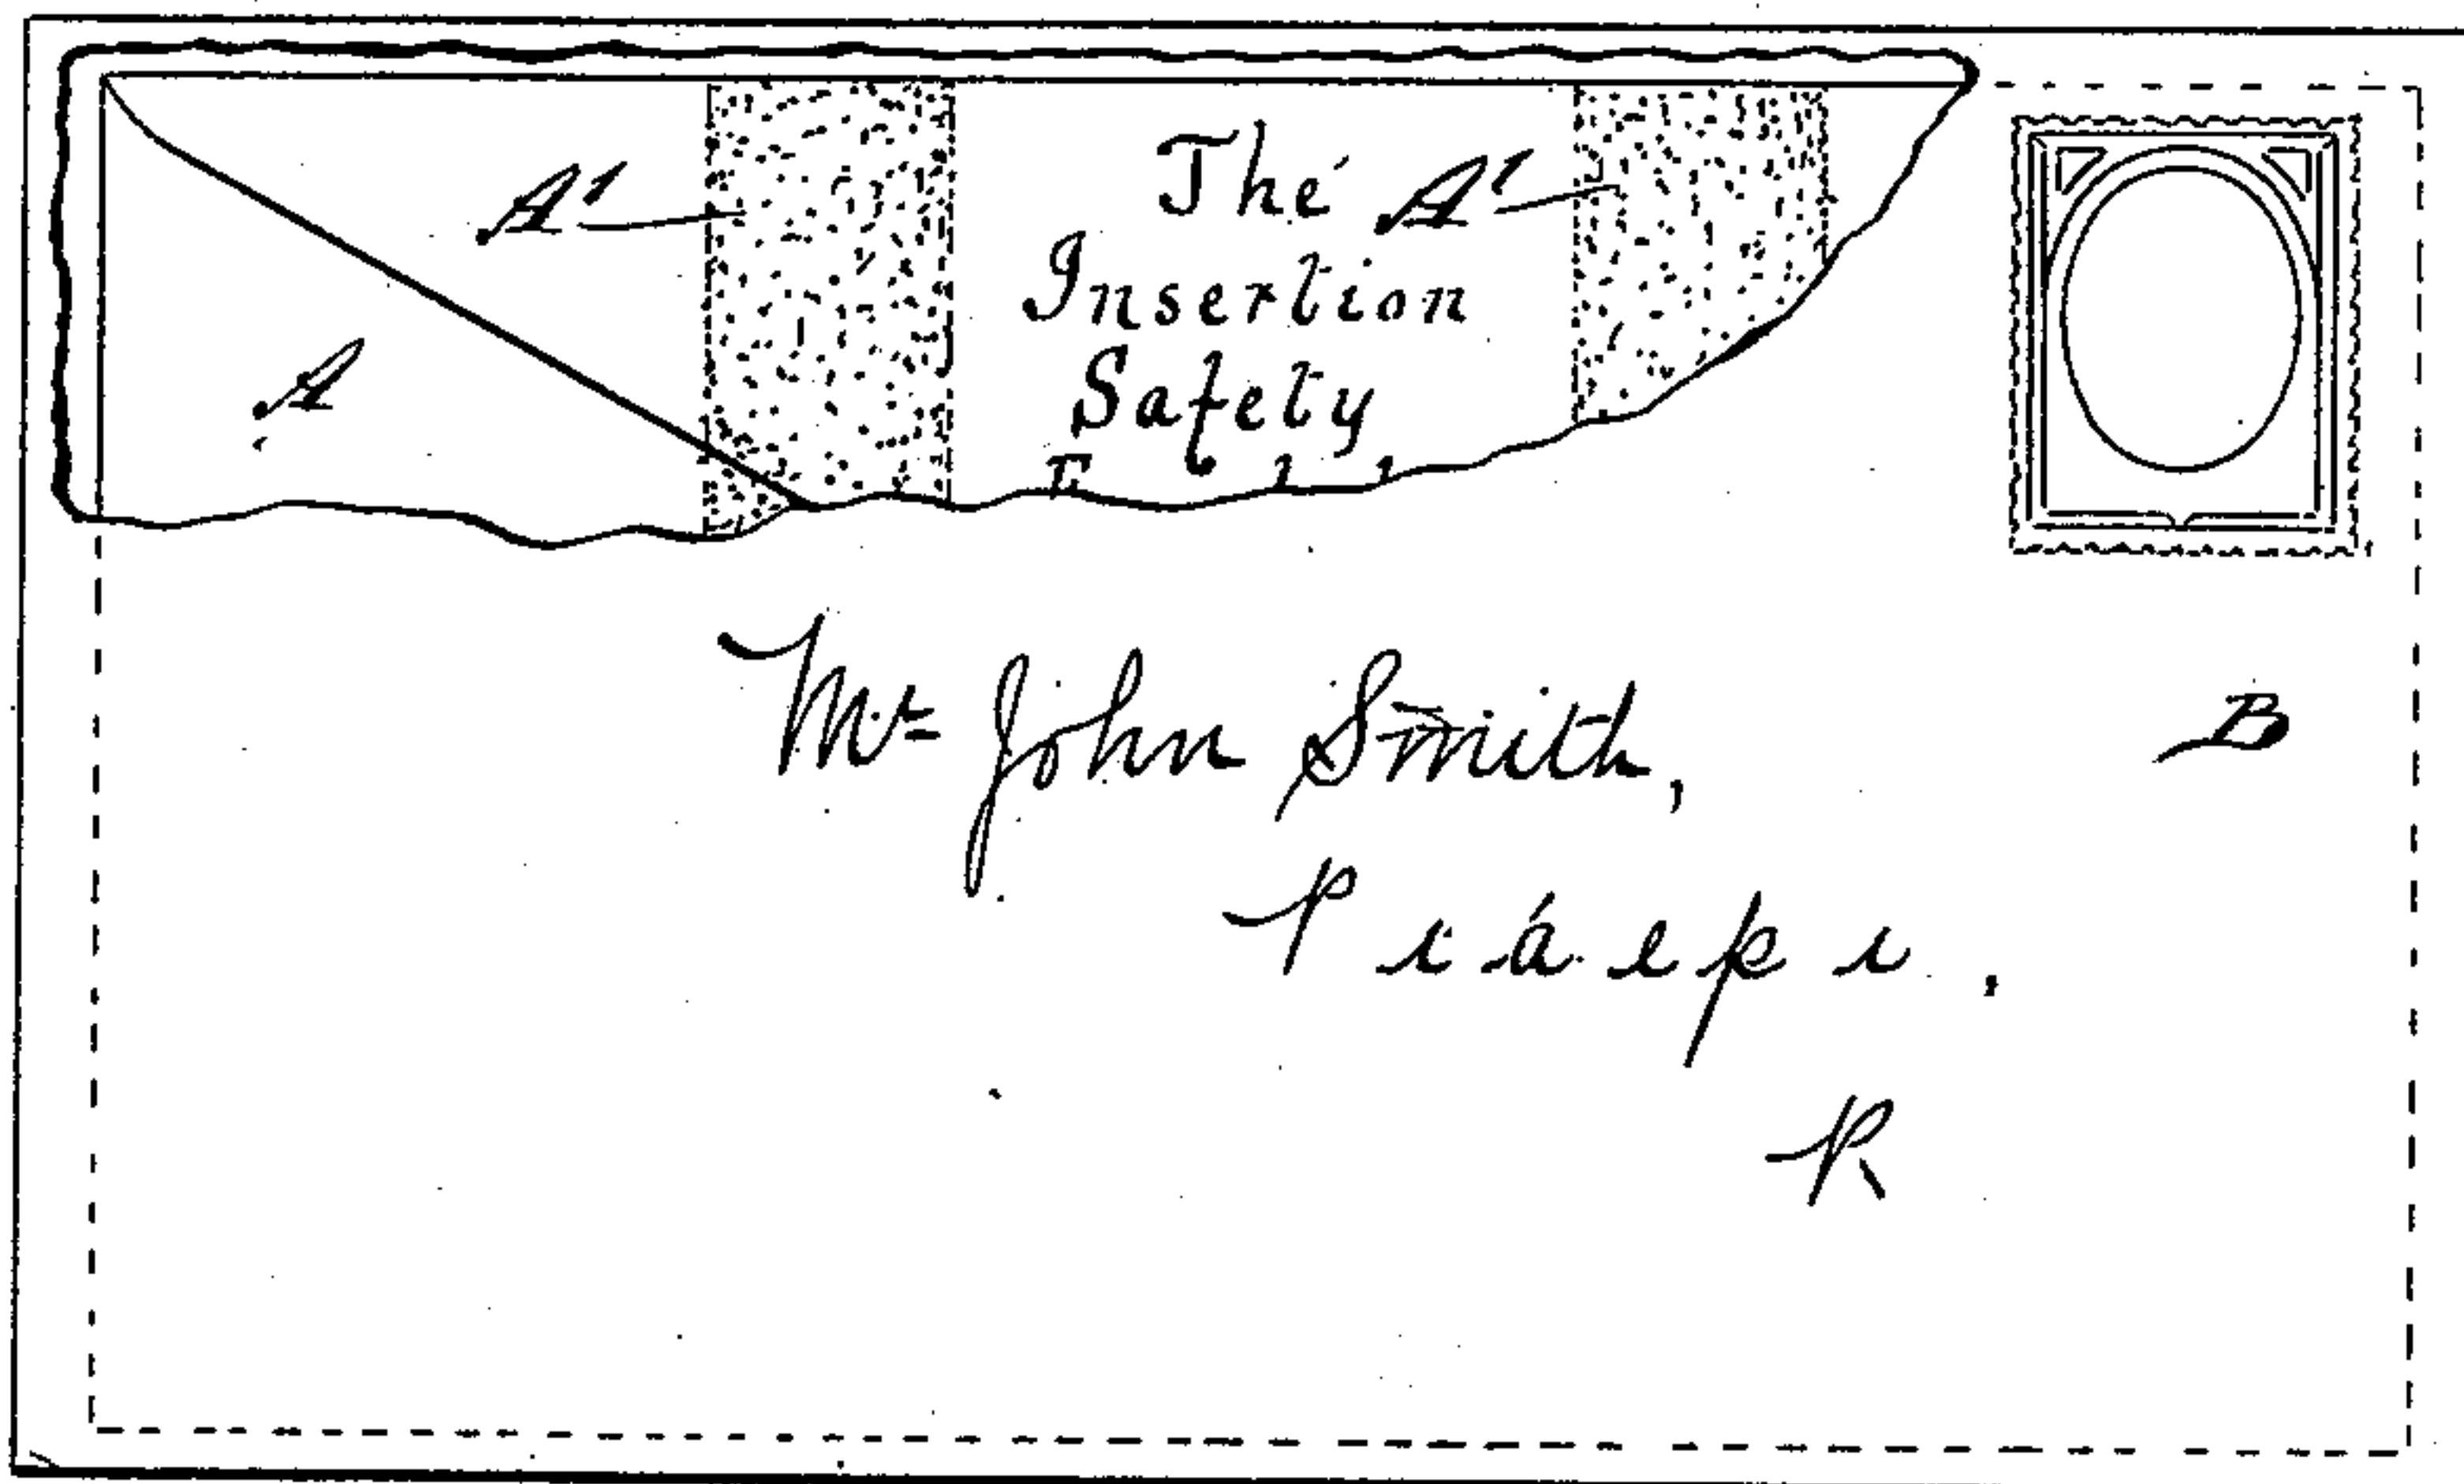 A' The A'
Insertion
Safety
A
Mr John Smith,
B
R